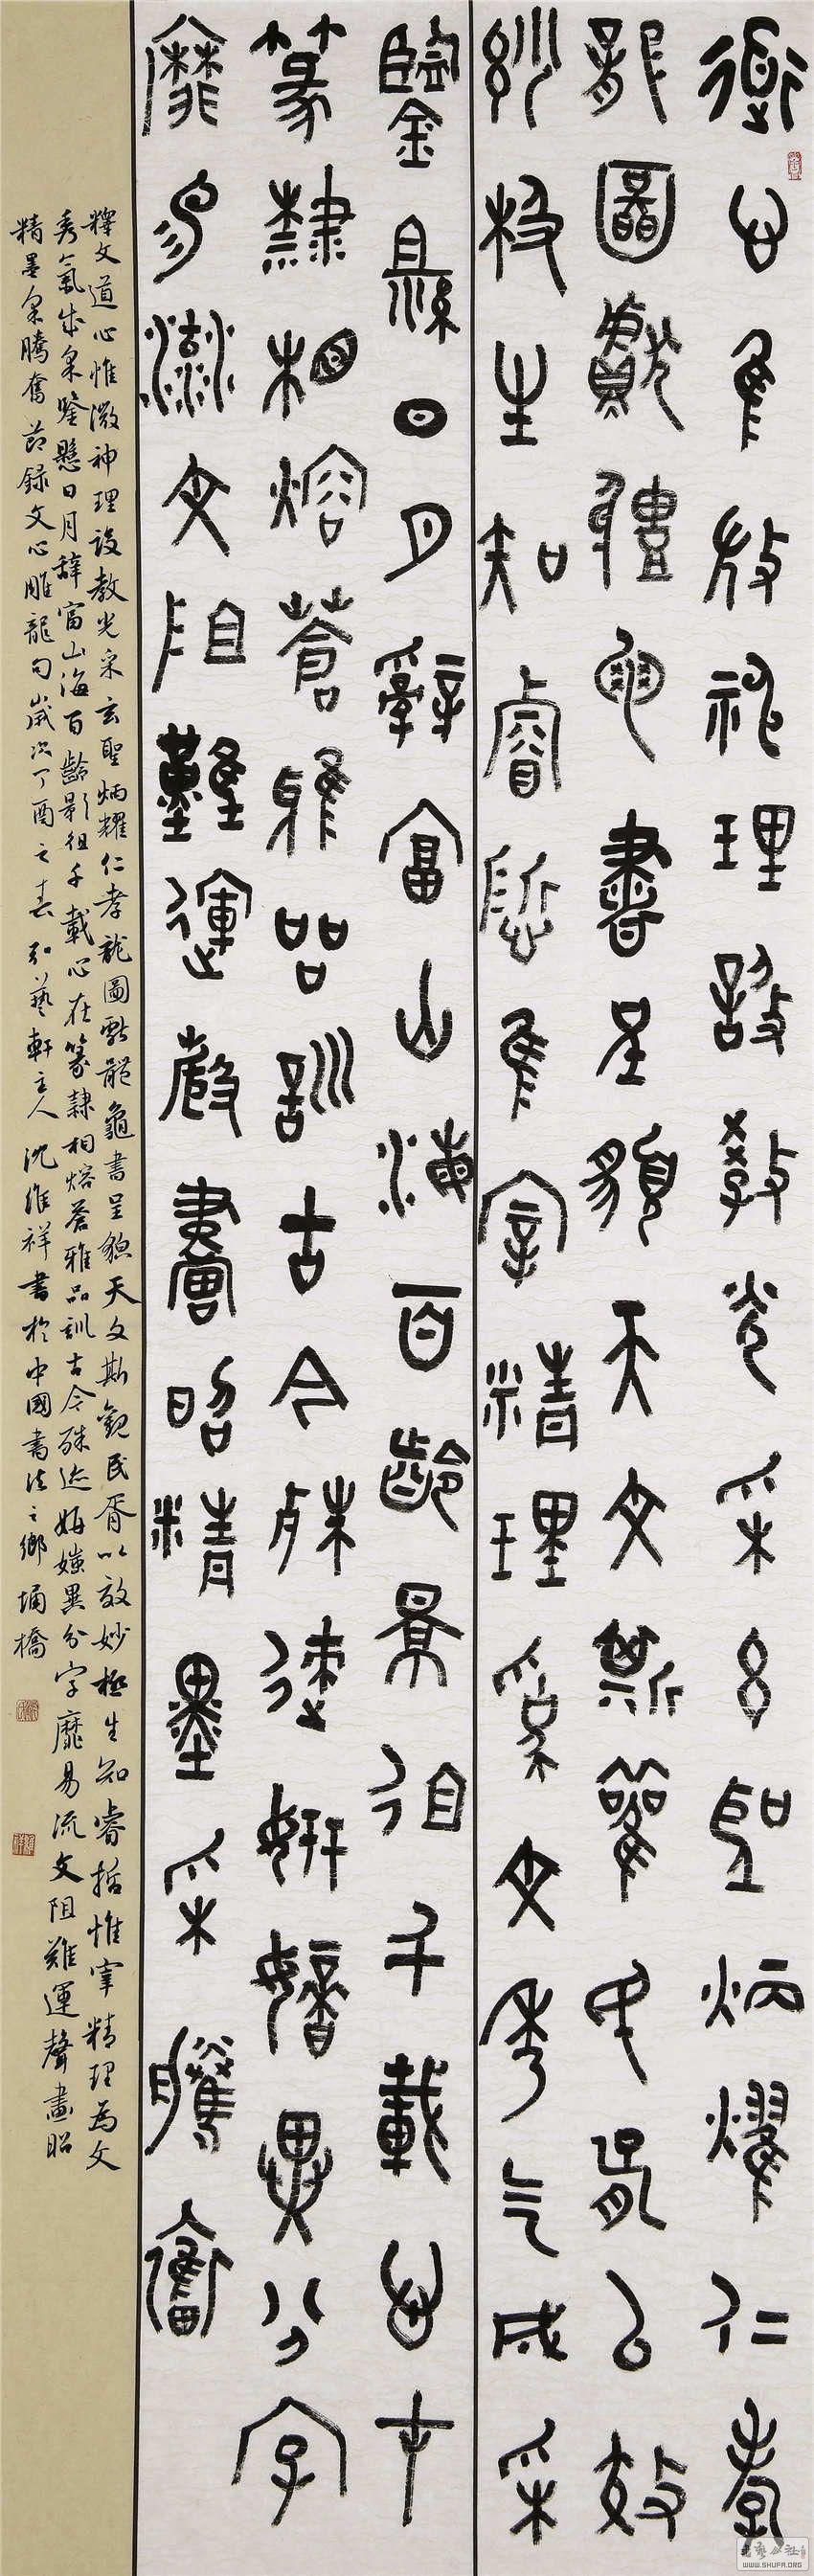 道心惟微神理設教光采玄聖炳燿仁孝
龍圖獻體龜書呈貌天文斯觀民胥以效
妙極生知睿哲隹宰精理爲文秀气成采
鑒縣日月辭富山海百齡景徂千載心才
篆隸相熔蒼雅品訓古今殊速妍媸異分字
靡易流文阻難運聲畫昭精墨采騰奮
釋文道心惟微神理設教光采玄聖炳耀仁孝龍圖獻體龜書呈貌天文斯觀民胥以效妙極生知睿哲惟宰精理為文
秀氣成采鑒懸日月辭富山海百齡影徂千載心在篆隸相熔蒼雅品訓古今殊迹妍媸異分字靡易流文阻難運聲畫昭
精墨采騰奮節録文心雕龍句歲次丁酉之春弘藝軒主人沈維祥書於中國書法之鄉埇橋
WWW.SHUFA.COM